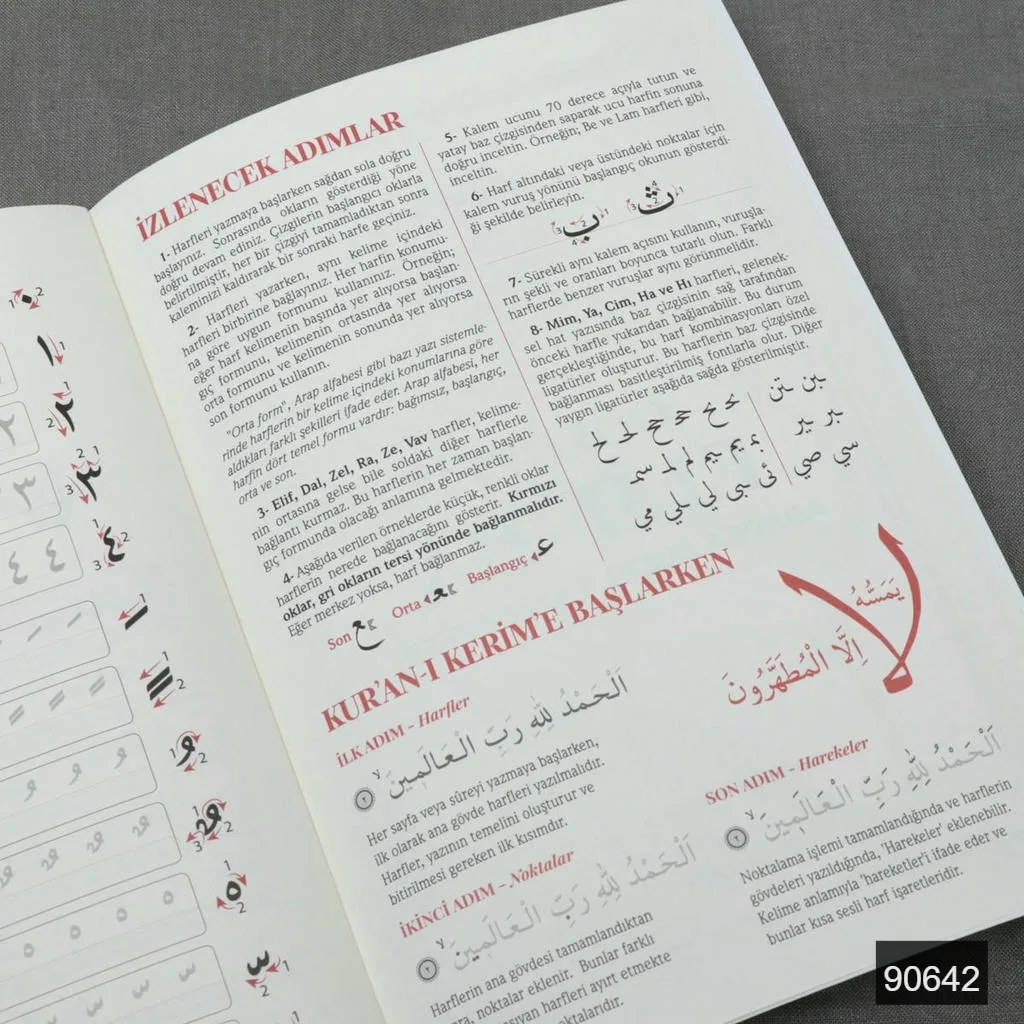 İZLENECEK ADIMLAR
1- Harfleri yazmaya başlarken sağdan sola doğru
başlayınız. Sonrasında okların gösterdiği yöne
doğru devam ediniz. Çizgilerin başlangıcı oklarla
belirtilmiştir, her bir çizgiyi tamamladıktan sonra
kaleminizi kaldırarak bir sonraki harfe geçiniz.
2- Harfleri yazarken, aynı kelime içindeki
harfleri birbirine bağlayınız. Her harfin konumu-
na göre uygun formunu kullanınız. Örneğin;
eğer harf kelimenin başında yer alıyorsa başlan-
gıç formunu, kelimenin ortasında yer alıyorsa
orta formunu ve kelimenin sonunda yer alıyorsa
son formunu kullanın.
"Orta form", Arap alfabesi gibi bazı yazı sistemle-
rinde harflerin bir kelime içindeki konumlarına göre
aldıkları farklı şekilleri ifade eder. Arap alfabesi, her
harfin dört temel formu vardır: bağımsız, başlangıç,
orta ve son.
3- Elif, Dal, Zel, Ra, Ze, Vav harfler, kelime-
nin ortasına gelse bile soldaki diğer harflerle
bağlantı kurmaz. Bu harflerin her zaman başlan-
gıç formunda olacağı anlamına gelmektedir.
4- Aşağıda verilen örneklerde küçük, renkli oklar
harflerin nerede bağlanacağını gösterir. Kırmızı
oklar, gri okların tersi yönünde bağlanmalıdır.
Eğer merkez yoksa, harf bağlanmaz.
Son Orta Başlangıç
5- Kalem ucunu 70 derece açıyla tutun ve
yatay baz çizgisinden saparak ucu harfin sonuna
doğru inceltin. Örneğin; Be ve Lam harfleri gibi,
inceltin.
6- Harf altındaki veya üstündeki noktalar için
kalem vuruş yönünü başlangıç okunun gösterdi-
ği şekilde belirleyin.
ب ث
7- Sürekli aynı kalem açısını kullanın, vuruşla-
rın şekli ve oranları boyunca tutarlı olun. Farklı
harflerde benzer vuruşlar aynı görünmelidir.
8- Mim, Ya, Cim, Ha ve Hı harfleri, gelenek-
sel hat yazısında baz çizgisinin sağ tarafından
önceki harfle yukarıdan bağlanabilir. Bu durum
gerçekleştiğinde, bu harf kombinasyonları özel
ligatürler oluşturur. Bu harflerin baz çizgisinde
bağlanması basitleştirilmiş fontlarla olur. Diğer
yaygın ligatürler aşağıda sağda gösterilmiştir.
KUR'AN-I KERİM'E BAŞLARKEN
لا يَمَسُّهُ
اِلَّا الْمُطَهَّرُونَ
İLK ADIM - Harfler
اَلْحَمْدُ لِلّٰهِ رَبِّ الْعَالَمِينَ
Her sayfa veya sûreyi yazmaya başlarken,
ilk olarak ana gövde harfleri yazılmalıdır.
Harfler, yazının temelini oluşturur ve
bitirilmesi gereken ilk kısımdır.
İKİNCİ ADIM - Noktalar
اَلْحَمْدُ لِلّٰهِ رَبِّ الْعَالَمِينَ
Harflerin ana gövdesi tamamlandıktan
noktalar eklenir. Bunlar farklı
harfleri ayırt etmekte
SON ADIM - Harekeler
اَلْحَمْدُ لِلّٰهِ رَبِّ الْعَالَمِينَ
Noktalama işlemi tamamlandığında ve harflerin
gövdeleri yazıldığında, 'Harekeler' eklenebilir.
Kelime anlamıyla 'hareketler'i ifade eder ve
bunlar kısa sesli harf işaretleridir.
90642